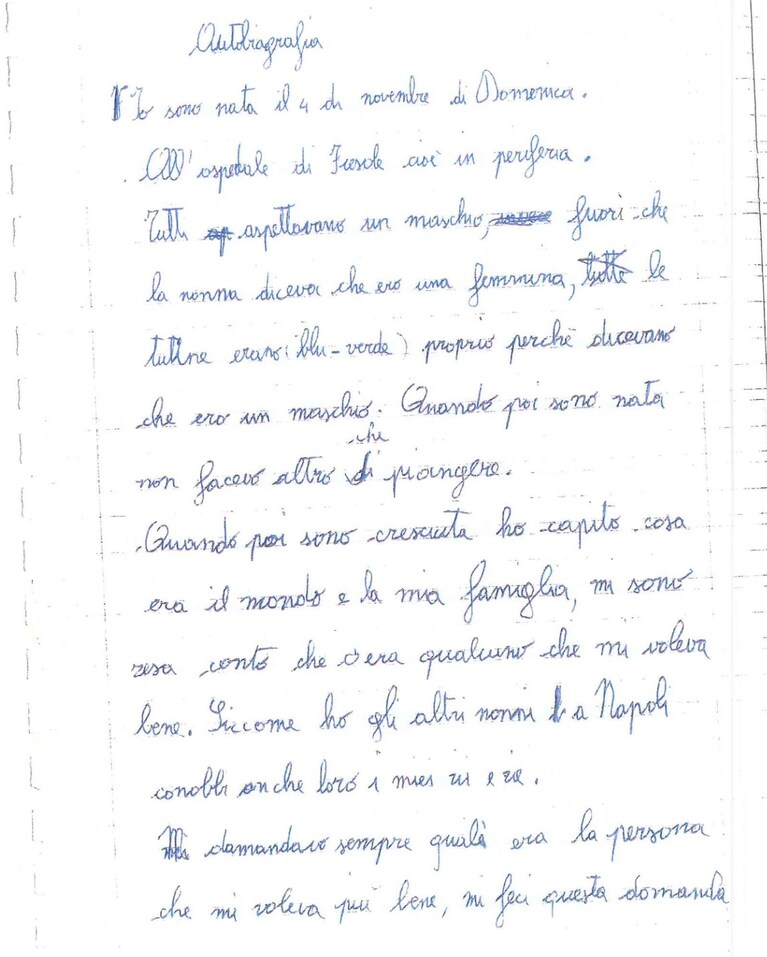 Autobiografia
Io sono nata il 4 di novembre di Domenica.
All'ospedale di Fiesole cioè in periferia.
Tutti aspettavano un maschio, fuori che
la nonna diceva che ero una femmina, le
tutine erano (blu-verde) proprio perchè dicevano
che ero un maschio. Quando poi sono nata
non facevo altro che piangere.
Quando poi sono cresciuta ho capito cosa
era il mondo e la mia famiglia, mi sono
resa conto che c'era qualcuno che mi voleva
bene. Siccome ho gli altri nonni a Napoli
conobbi anche loro i miei zii e zie.
Mi damandavo sempre quale era la persona
che mi voleva più bene, mi feci questa domanda